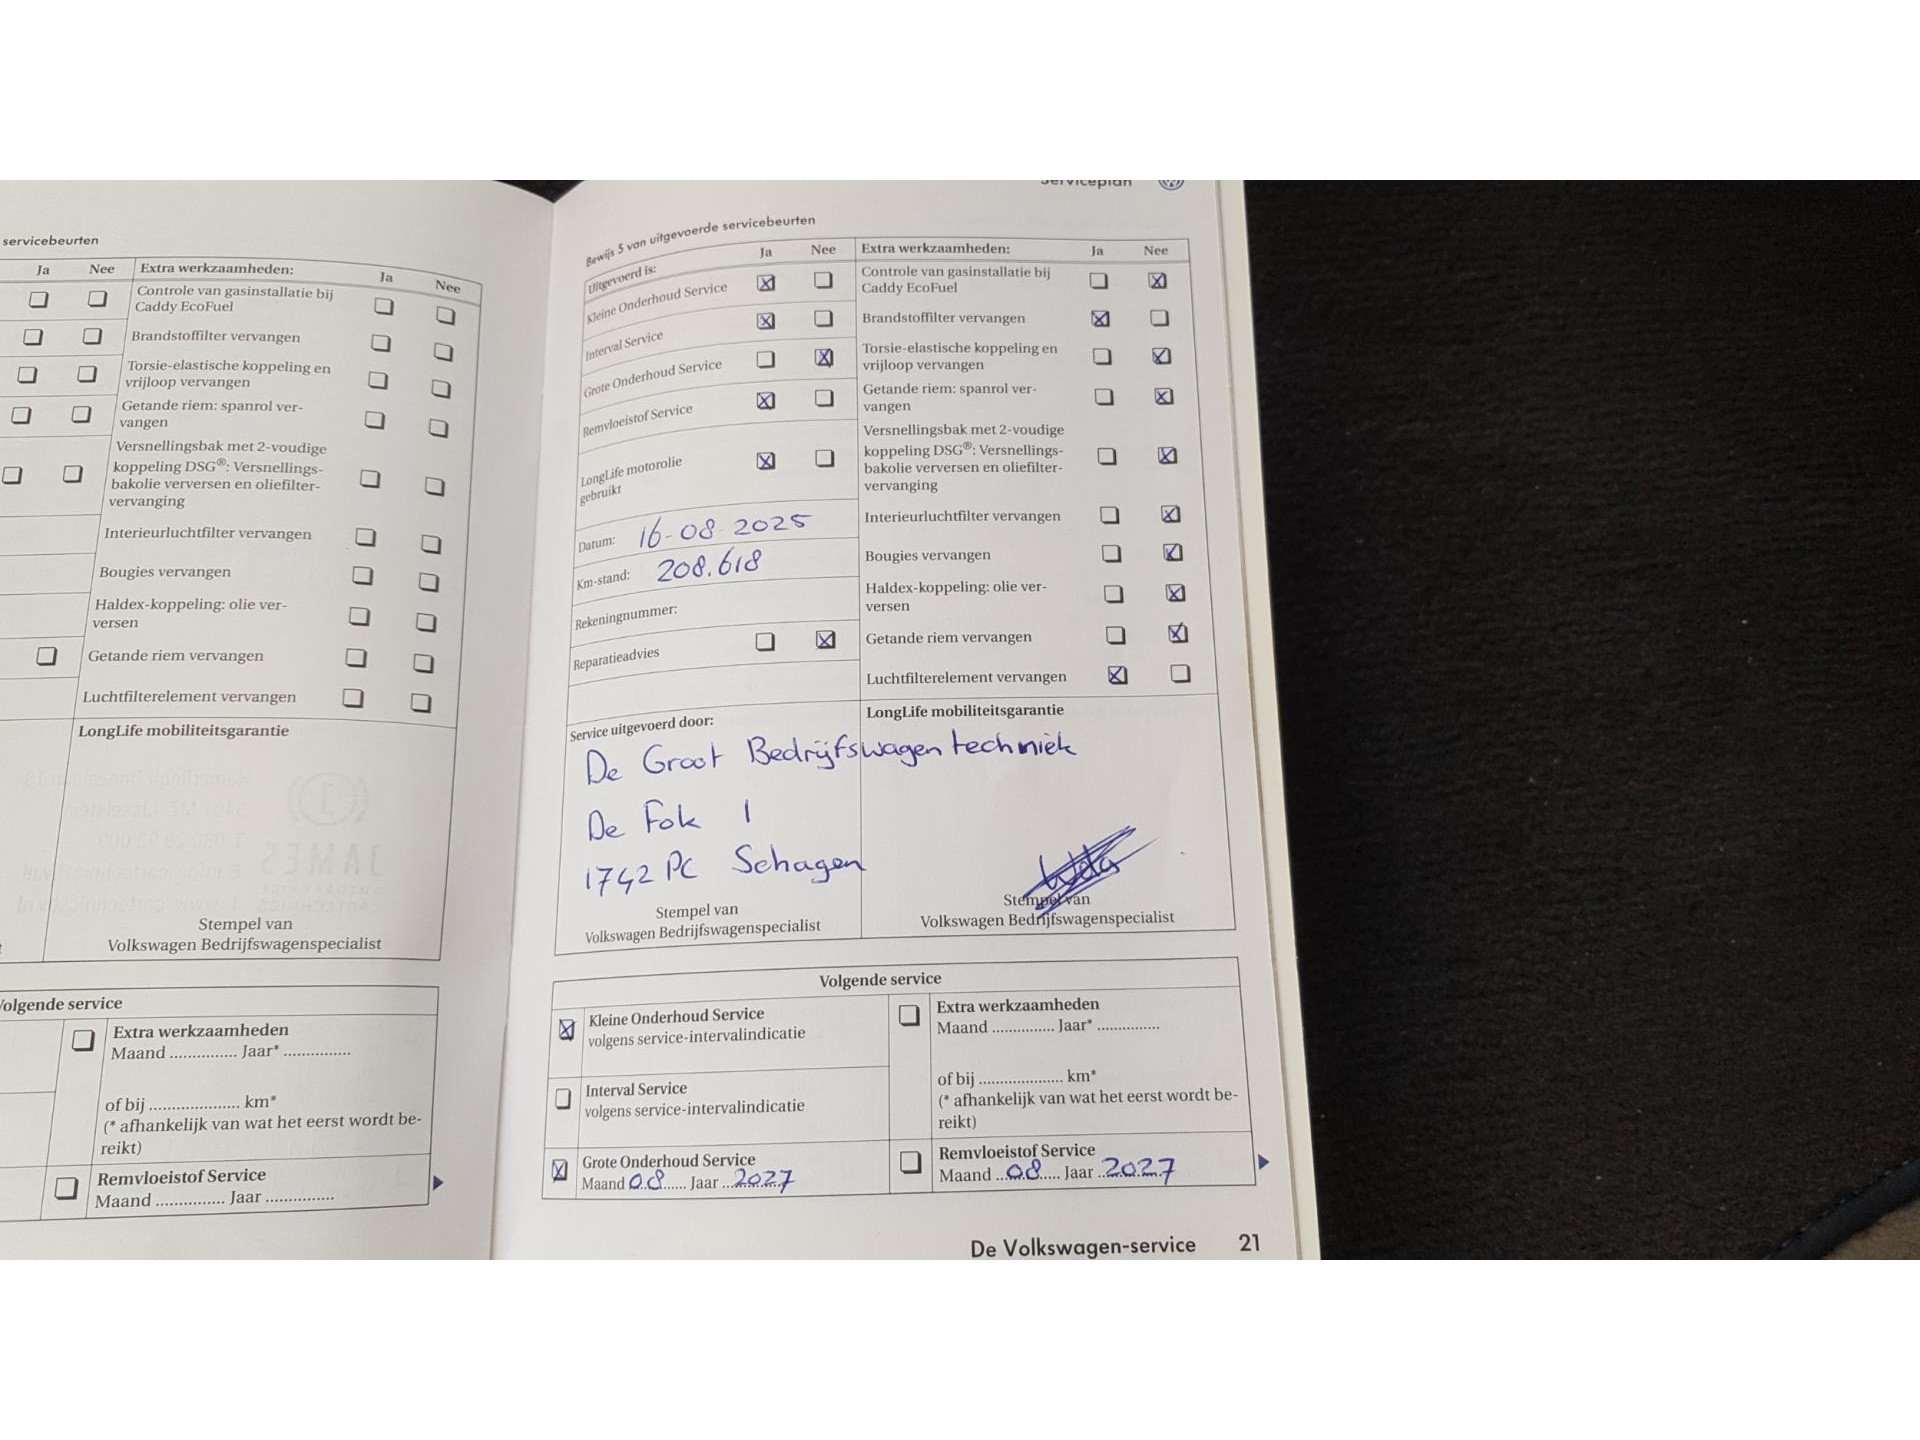 servicebeurten
Ja Nee Extra werkzaamheden: Ja Nee
Controle van gasinstallatie bij
Caddy EcoFuel
Brandstoffilter vervangen
Torsie-elastische koppeling en
vrijloop vervangen
Getande riem: spanrol ver-
vangen
Versnellingsbak met 2-voudige
koppeling DSG®: Versnellings-
bakolie verversen en oliefilter-
vervanging
Interieurluchtfilter vervangen
Bougies vervangen
Haldex-koppeling: olie ver-
versen
Getande riem vervangen
Luchtfilterelement vervangen
LongLife mobiliteitsgarantie
JAMES
Stempel van
Volkswagen Bedrijfswagenspecialist
Volgende service
Extra werkzaamheden
Maand ............... Jaar* ...............
of bij ..................... km*
(* afhankelijk van wat het eerst wordt be-
reikt)
Remvloeistof Service
Maand ................ Jaar ...............
Serviceplan
Bewijs 5 van uitgevoerde servicebeurten
Uitgevoerd is: Ja Nee
Kleine Onderhoud Service
Interval Service
Grote Onderhoud Service
Remvloeistof Service
LongLife motorolie
gebruikt
Datum: 16-08-2025
Km-stand: 208.618
Rekeningnummer:
Reparatieadvies
Extra werkzaamheden: Ja Nee
Controle van gasinstallatie bij
Caddy EcoFuel
Brandstoffilter vervangen
Torsie-elastische koppeling en
vrijloop vervangen
Getande riem: spanrol ver-
vangen
Versnellingsbak met 2-voudige
koppeling DSG®: Versnellings-
bakolie verversen en oliefilter-
vervanging
Interieurluchtfilter vervangen
Bougies vervangen
Haldex-koppeling: olie ver-
versen
Getande riem vervangen
Luchtfilterelement vervangen
Service uitgevoerd door:
De Groot Bedrijfswagentechniek
De Fok 1
1742 PC Schagen
Stempel van
Volkswagen Bedrijfswagenspecialist
LongLife mobiliteitsgarantie
Stempel van
Volkswagen Bedrijfswagenspecialist
Volgende service
Kleine Onderhoud Service
volgens service-intervalindicatie
Interval Service
volgens service-intervalindicatie
Grote Onderhoud Service
Maand 08 Jaar 2027
Extra werkzaamheden
Maand ............... Jaar* ...............
of bij ..................... km*
(* afhankelijk van wat het eerst wordt be-
reikt)
Remvloeistof Service
Maand 08 Jaar 2027
De Volkswagen-service 21